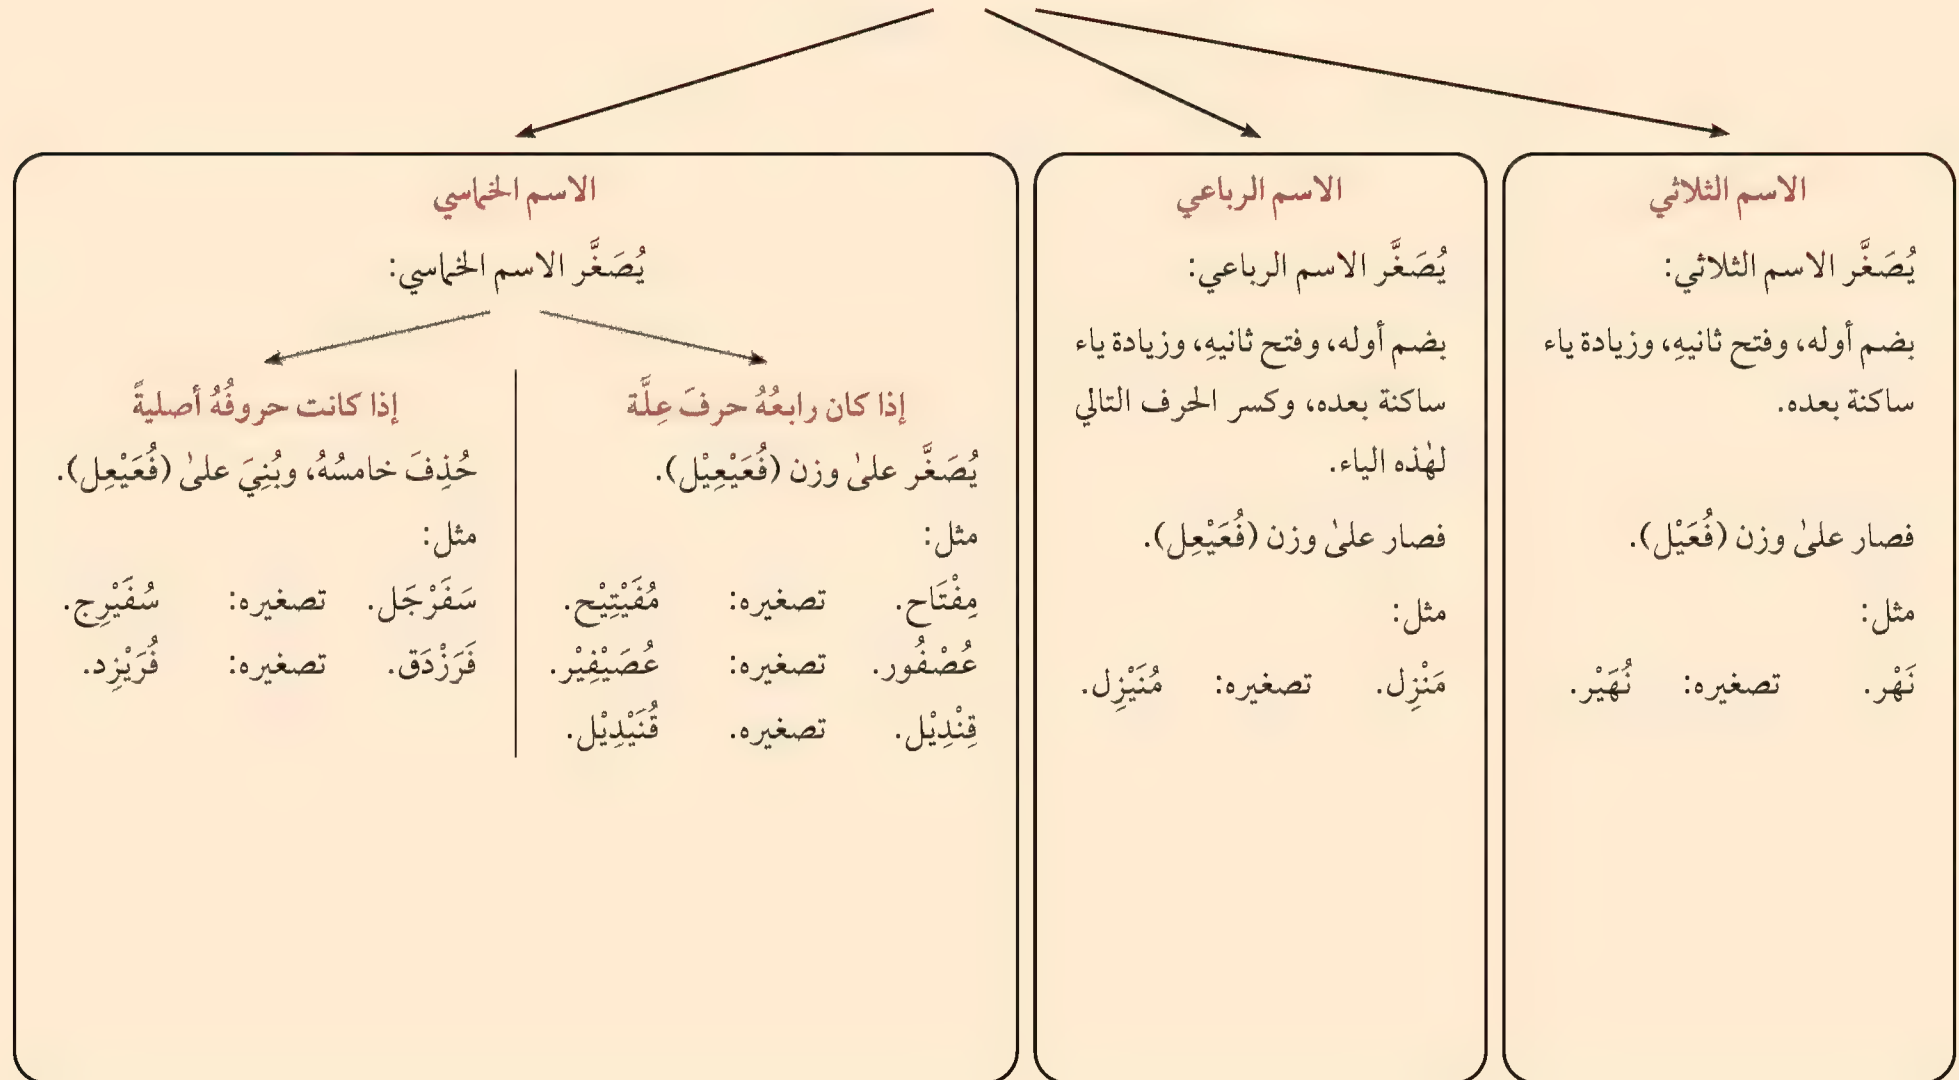 الاسم الثلاثي
يُصَغَّر الاسم الثلاثي:
بضم أوله، وفتح ثانيهِ، وزيادة ياء
ساكنة بعده.
فصار علىٰ وزن (فُعَيْل).
مثل:
نَهْر. تصغيره: نُهَيْر.
الاسم الرباعي
يُصَغَّر الاسم الرباعي:
بضم أوله، وفتح ثانيهِ، وزيادة ياء
ساكنة بعده، وكسر الحرف التالي
لهٰذه الياء.
فصار علىٰ وزن (فُعَيْعِل).
مثل:
مَنْزِل. تصغيره: مُنَيْزِل.
الاسم الخماسي
يُصَغَّر الاسم الخماسي:
إذا كان رابعُهُ حرفَ عِلَّة
يُصَغَّر علىٰ وزن (فُعَيْعِيْل).
مثل:
مِفْتَاح. تصغيره: مُفَيْتِيْح.
عُصْفُور. تصغيره: عُصَيْفِيْر.
قِنْدِيْل. تصغيره. قُنَيْدِيْل.
إذا كانت حروفُهُ أصليةً
حُذِفَ خامسُهُ، وبُنِيَ علىٰ (فُعَيْعِل).
مثل:
سَفَرْجَل. تصغيره: سُفَيْرِج.
فَرَزْدَق. تصغيره: فُرَيْزِد.